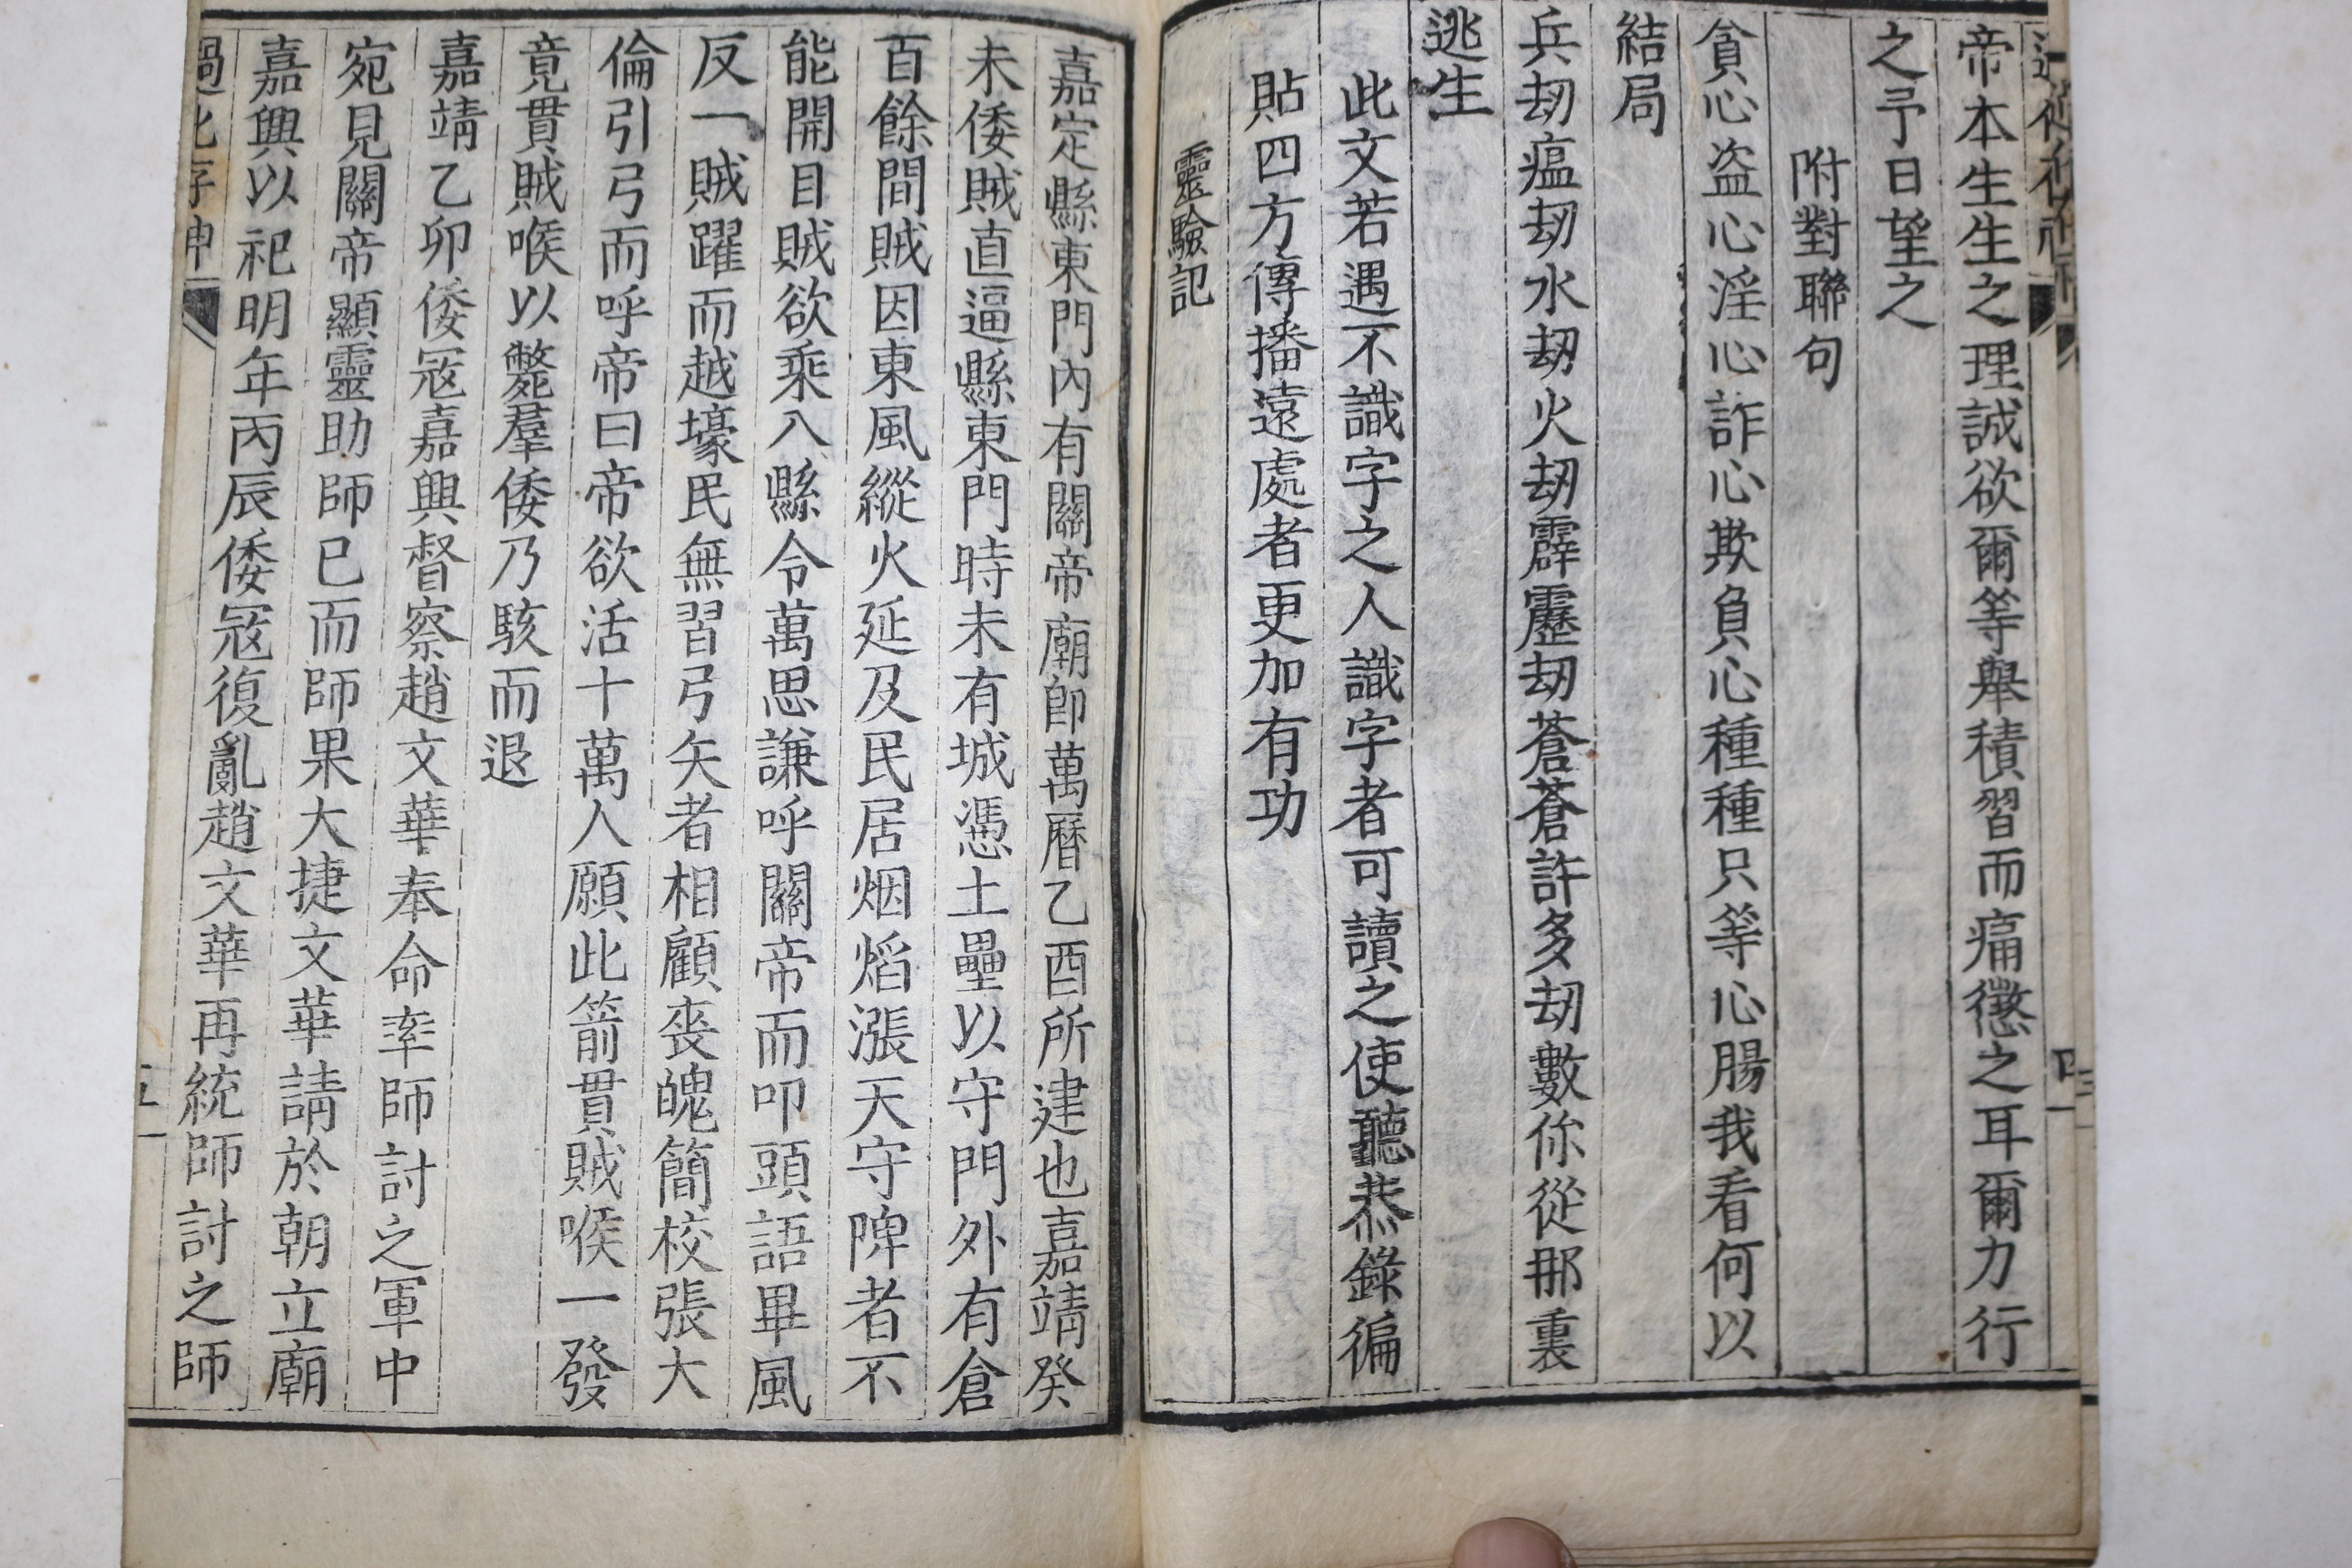 帝本生生之理誠欲爾等舉積習而痛懲之耳爾力行
之予日望之
附對聯句
貪心盗心淫心詐心欺負心種種只等心腸我看何以
結局
兵刼瘟刼水刼火刼霹靂刼蒼蒼許多刼數你從那裏
逃生
此文若遇不識字之人識字者可讀之使聽恭錄徧
貼四方傳播遠處者更加有功
靈驗記
嘉定縣東門內有關帝廟卽萬曆乙酉所建也嘉靖癸
未倭賊直逼縣東門時未有城憑土壘以守門外有倉
百餘間賊因東風縱火延及民居烟焰漲天守陴者不
能開目賊欲乘入縣令萬思謙呼關帝而叩頭語畢風
反一賊躍而越壕民無習弓矢者相顧喪魄簡校張大
倫引弓而呼帝曰帝欲活十萬人願此箭貫賊喉一發
竟貫賊喉以斃羣倭乃駭而退
嘉靖乙卯倭冦嘉興督察趙文華奉命率師討之軍中
宛見關帝顯靈助師已而師果大捷文華請於朝立廟
嘉興以祀明年丙辰倭冦復亂趙文華再統師討之師